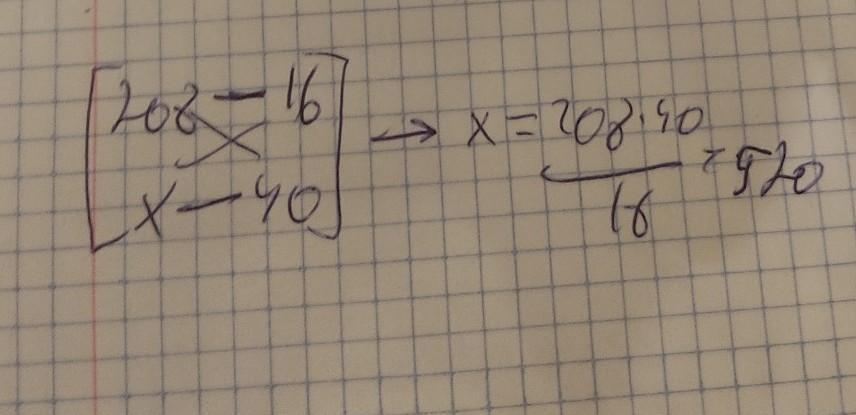 208 — 16
x — 40
→ x = 208·40 / 16 = 520